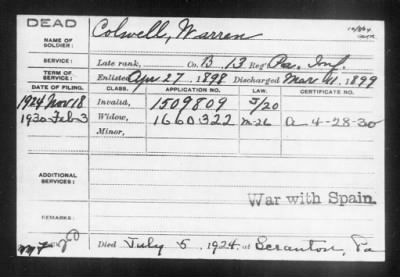 DEAD
NAME OF SOLDIER: Colwell, Warren
SERVICE: Late rank, Co. B 13 Reg. Pa. Inf.
TERM OF SERVICE: Enlisted Apr 27, 1898 Discharged Mar 11, 1899
DATE OF FILING. CLASS. APPLICATION NO. LAW. CERTIFICATE NO.
1924 Nov 18 Invalid, 1509809 5/20
1930 Feb 3 Widow, 1660322 M-26 a 4-28-30
Minor,
ADDITIONAL SERVICES:
War with Spain.
REMARKS:
Died July 5, 1924, at Scranton, Pa